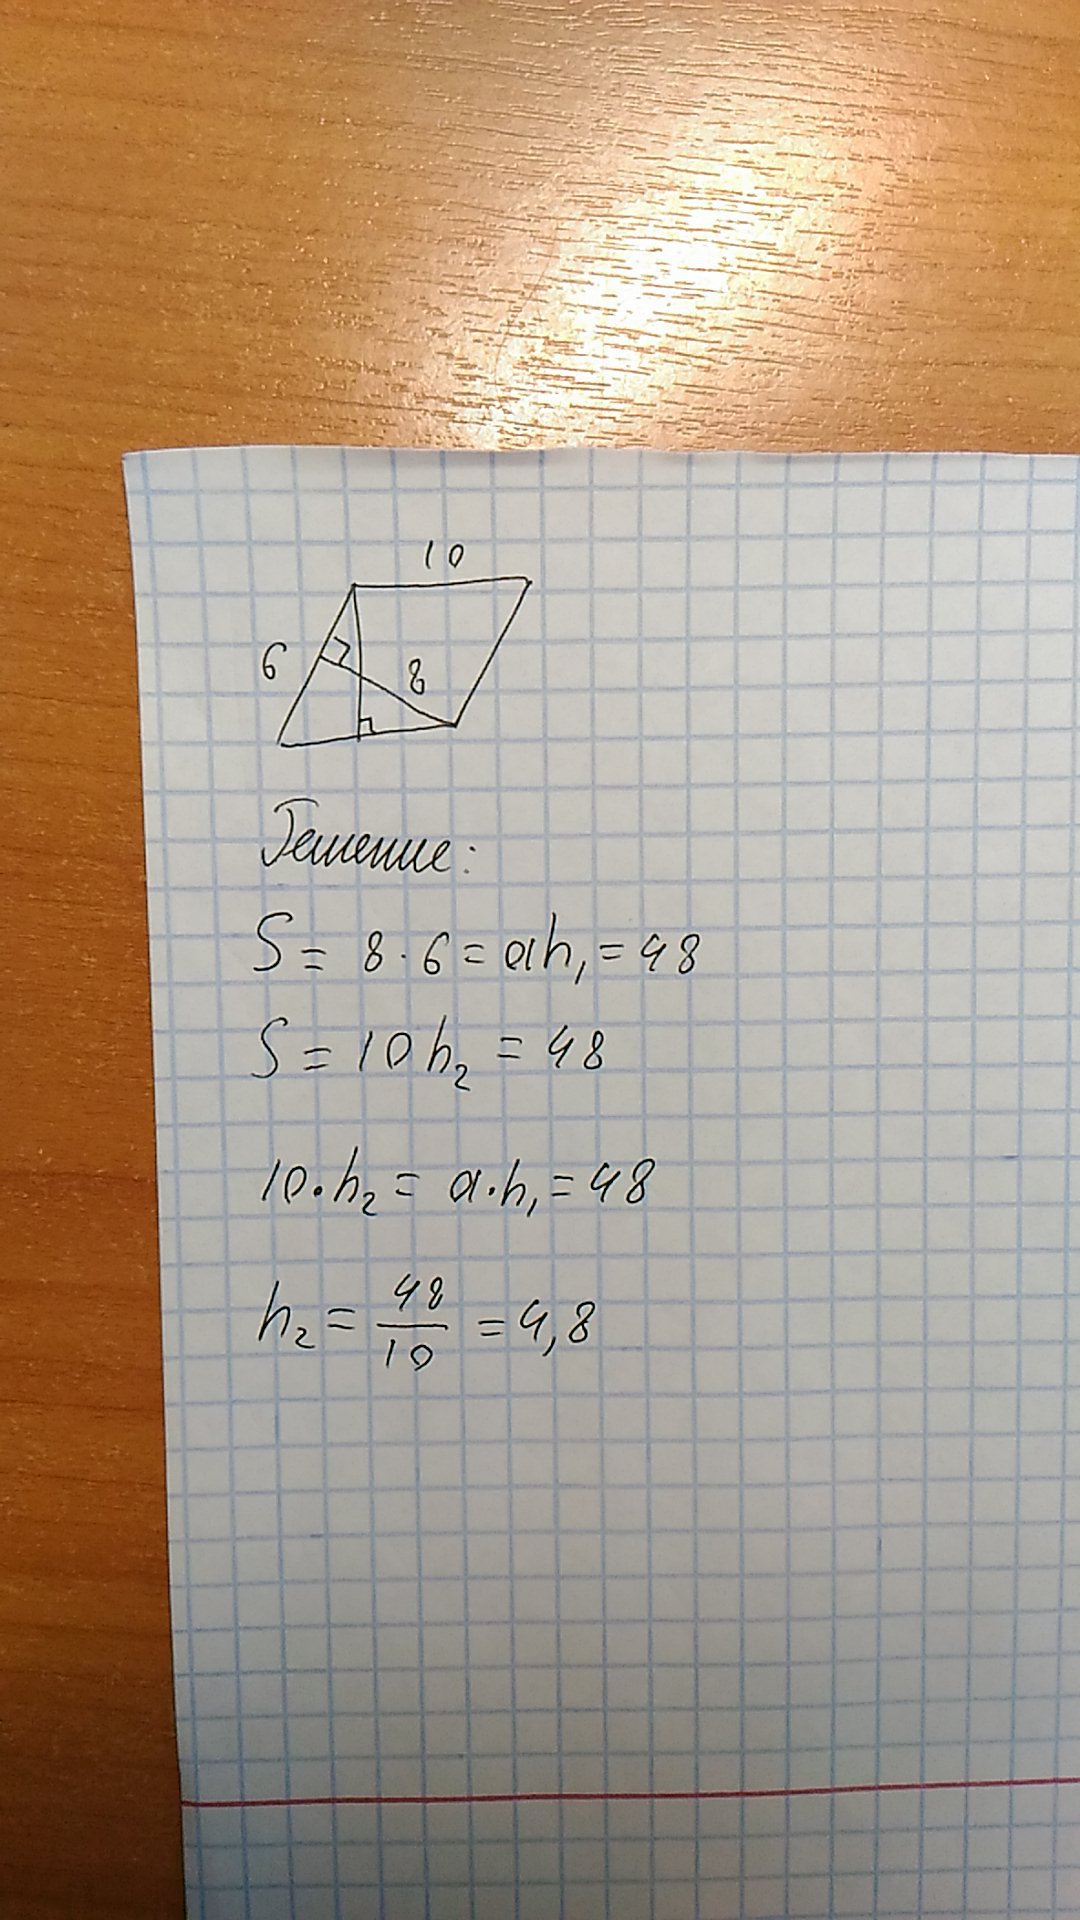 10
6
8
Решение:
S = 8 · 6 = ah₁ = 48
S = 10 h₂ = 48
10 · h₂ = a · h₁ = 48
h₂ = 48/10 = 4,8